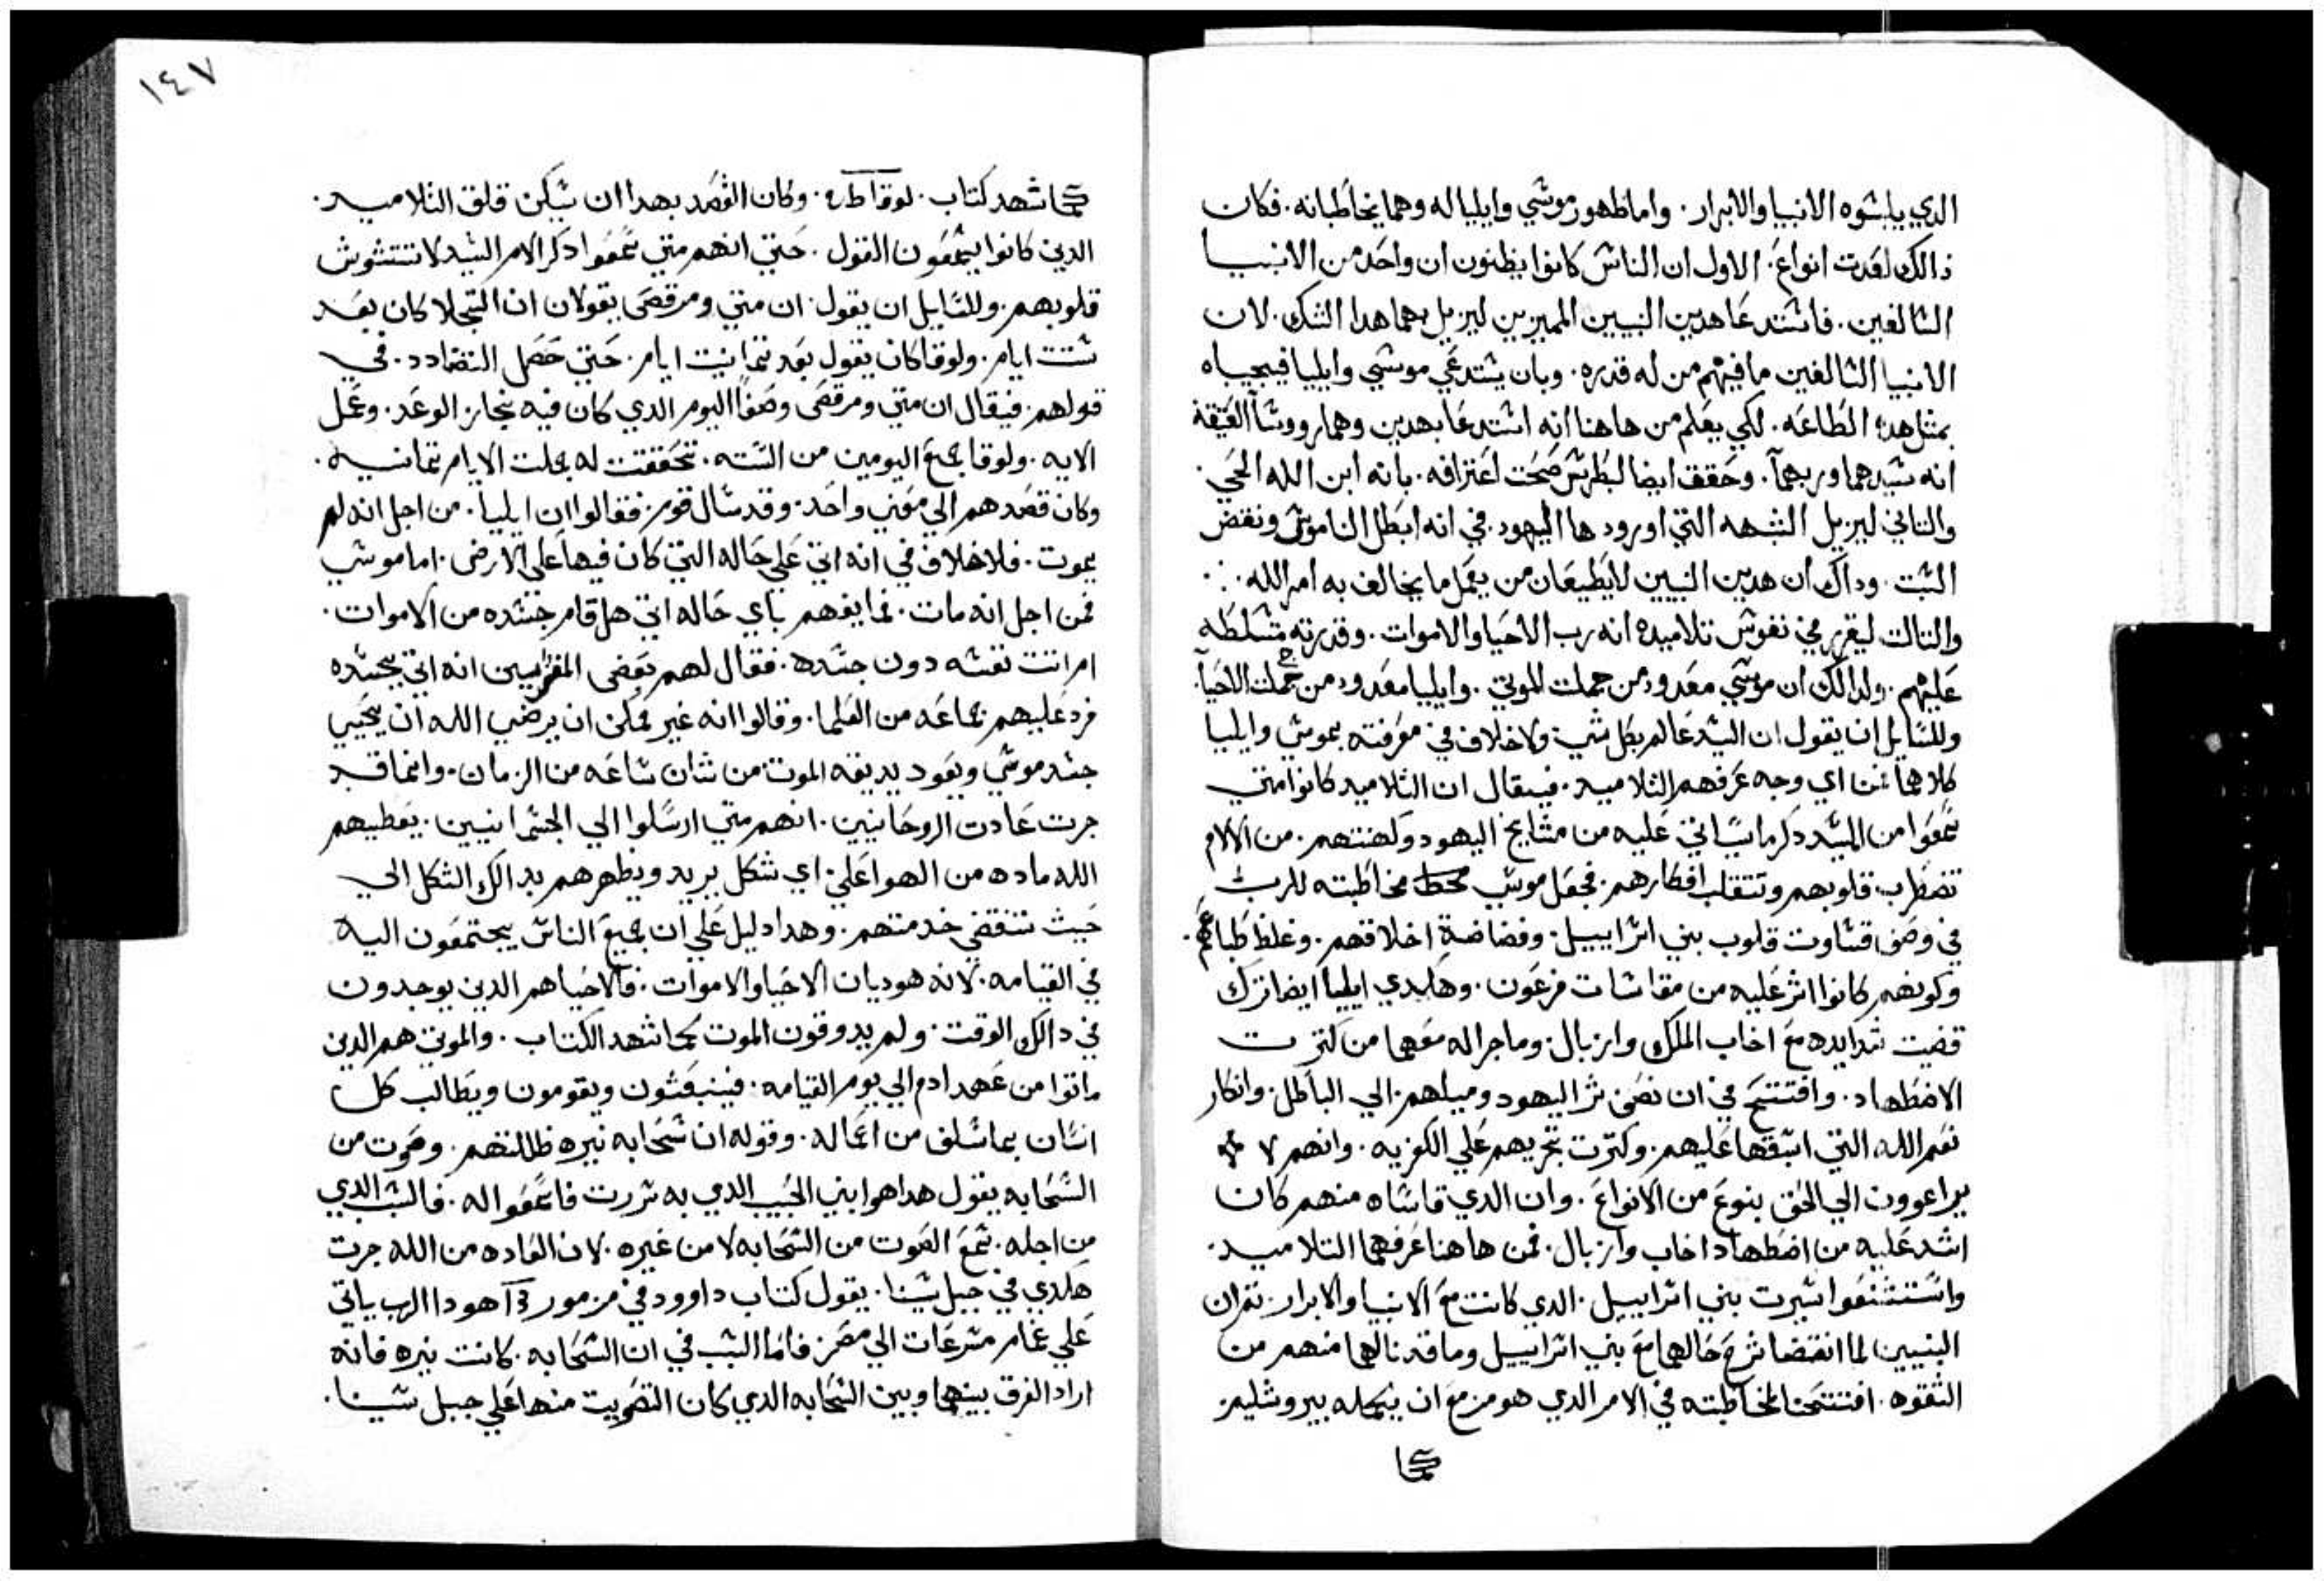 الدي يلبسوه الانبيا والابرار. واما ظهور موسي وايليا له وهما يخاطبانه. فكان
ذالك لعدت انواع. الاول ان الناس كانوا يظنون ان واحد من الانبيا
السالفين. فاستدعا هدين النبيين المميزين ليزيل بهما هدا الشك. لان
الانبيا السالفين ما فيهم من له قدره. وبان يستدعي موسي وايليا فيجيباه
بمثل هده الطاعه. لكي يعلم من هاهنا انه استدعا بهدين وهما رووسا العتيقة
انه سيدهما وربهما. وحقق ايضا لبطرس صحت اعترافه. بانه ابن الله الحي.
والتاني ليزيل الشبهه التي اورودها اليهود. في انه ابطل الناموس ونقض
السبت. وداك ان هدين النبيين لا يطيعان من يعمل ما يخالف به امر الله.
والتالت ليقرر في نفوس تلاميده انه رب الاحيا والاموات. وقدرته متسلطه
عليهم. ولدالك ان موسي معدود من جملت الموتي. وايليا معدود من جملت الاحيا.
وللسايل ان يقول ان السيد عالم بكل شي ولا خلاف في معرفته بموسي وايليا
كلاهما فمن اي وجه عرفهم التلاميد. فيقال ان التلاميد كانوا متي
سمعوا من السيد دكر ما يساتي عليه من مشايخ اليهود وكهنتهم. من الالام
تضطرب قلوبهم وتتقلب افكارهم. فجعل موسي محط مخاطبته للرب
في وصف قساوت قلوب بني اسراييل. وفضاضة اخلاقهم. وغلظ طباعهم.
وكونهم كانوا اشر عليه من مقاسات فرعون. وهكدي ايليا ايضا ترك
قضيت شدايده مع اخاب الملك وازبال. وما جرا له معهما من كترت
الاضطهاد. وافتتح في ان نصف شر اليهود وميلهم الي الباطل. وانكار
نعم الله التي اسبقها عليهم. وكترت تجريهم علي الكفر به. وانهم لا
يراعوون الي الحق بنوع من الانواع. وان الدي قاساه منهم كان
اشد عليه من اضطهاد اخاب وازبال. فمن هاهنا عرفهما التلاميد.
واستشنعوا سيرت بني اسراييل. الدي كانت مع الانبيا والابرار. تم ان
النبيين لما انقضا شرح حالهما مع بني اسراييل وما قد نالهما منهم من
الشقوه. افتتحنا لمخاطبته في الامر الدي هو مزمع ان يكمله بيروشليم
كما
١٤٧
كما شهد كتاب. لوقا ط ره. وكان القصد بهدا ان يسكن قلق التلاميد.
الدين كانوا يسمعون القول. حتي انهم متي سمعوا دكر الام السيد لا تتشوش
قلوبهم. وللسايل ان يقول: ان متي ومرقص يقولان ان التجلا كان بعد
ستت ايام. ولوقا كان يقول بعد تمانيت ايام. حتي حصل التضادد. في
قولهم. فيقال ان متي ومرقص وصفا اليوم الدي كان فيه نجاز الوعد. وعمل
الايه. ولوقا جمع اليومين من السته. تحققت له جملت الايام تمانيه.
وكان قصدهم الي معني واحد. وقد سال قوم. فقالوا ان ايليا. من اجل انه لم
يموت. فلا خلاف في انه اتي علي حاله التي كان فيها علي الارض. اما موسي
فمن اجل انه مات. فما يفهم باي حاله اتي هل قام جسده من الاموات.
ام اتت نفسه دون جسدها. فقال لهم بعض المفسريين انه اتي بجسده
فرد عليهم جماعه من العلما. وقالوا انه غير ممكن ان يرضي الله ان يحيي
جسد موسي ويعود يديقه الموت من تان ساعه من الزمان. وانما قد
جرت عادت الروحانيين. انهم متي ارسلوا الي الجسمانيين. يعطيهم
الله ماده من الهوا علي اي شكل يريد ويظهرهم بدالك الشكل الي
حيث تنقضي خدمتهم. وهدا دليل علي ان جميع الناس يجتمعون اليه
في القيامه. لانه هو ديان الاحيا والاموات. فالاحيا هم الدين يوجدون
في دالك الوقت. ولم يدوقون الموت كما شهد الكتاب. والموتي هم الدين
ماتوا من عهد ادم الي يوم القيامه. فينبعثون ويقومون ويطالب كل
انسان بما سلف من اعماله. وقوله ان سحابه نيره ظللتهم. وصوت من
السحابه يقول هدا هو ابني الحبيب الدي به سررت فاسمعوا له. فالسبب الدي
من اجله. سمع الصوت من السحابه لا من غيره. لان العاده من الله جرت
هكدي في جبل سينا. يقول كتاب داوود في مزمور هودا الرب ياتي
علي غمام مسرعات الي مصر فاما السبب في ان السحابه. كانت نيره فانه
اراد الفرق بينها وبين السحابه الدي كان التصويت منها علي جبل سينا.